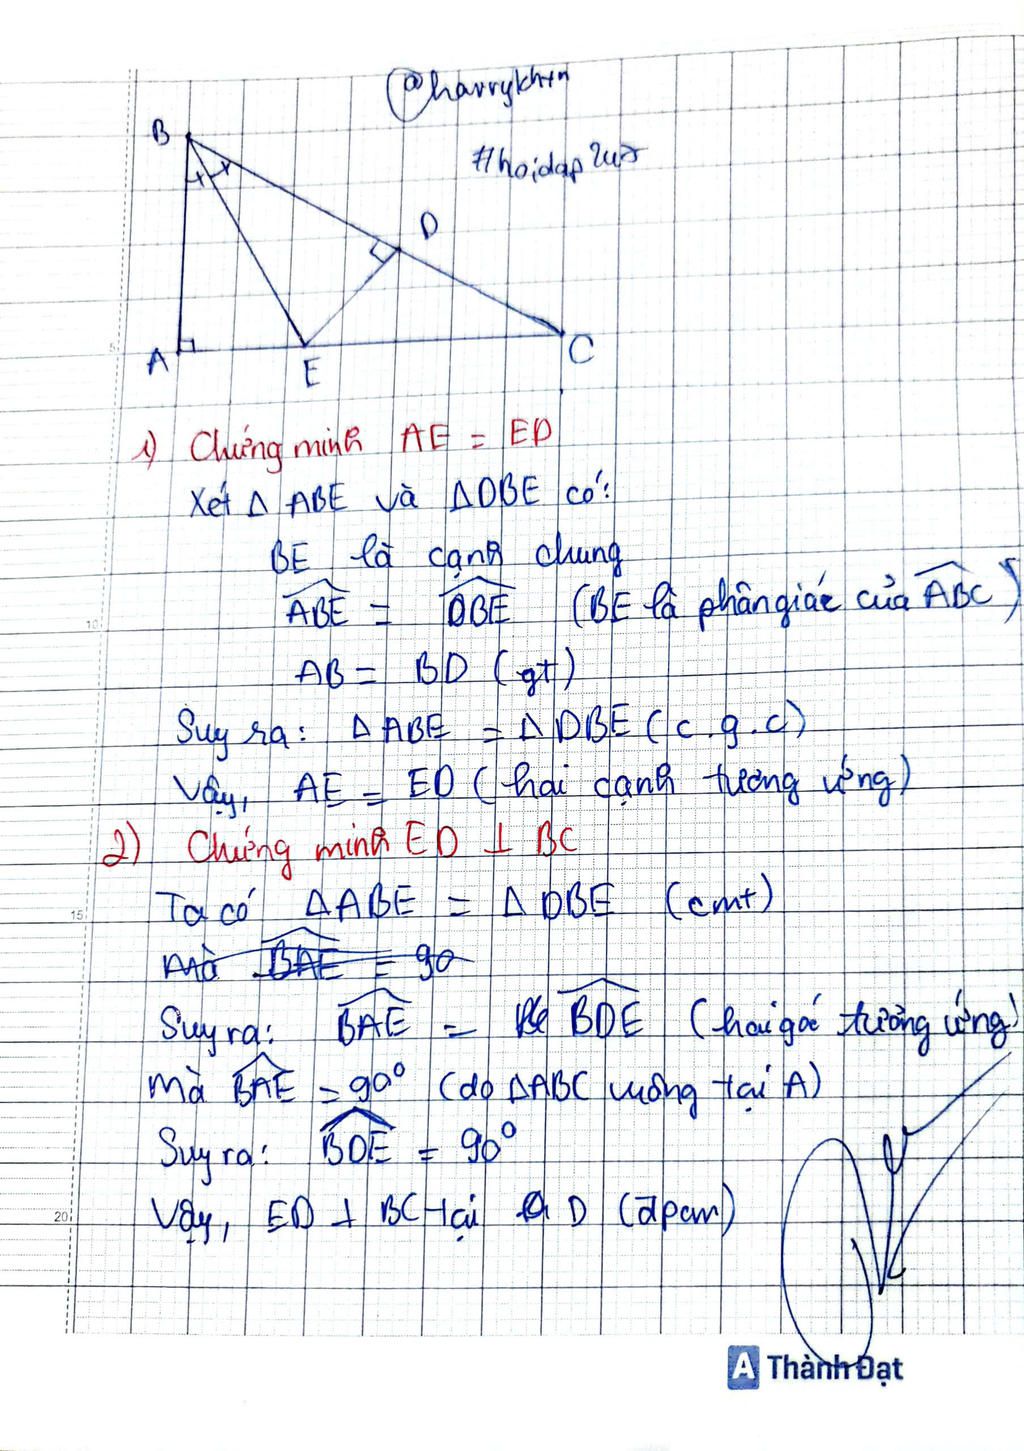 @harrykhtn
#hoidap247
B
D
A
E
C
5
1) Chứng minh AE = ED
Xét Δ ABE và ΔDBE có:
BE là cạnh chung
10
ABE = DBE (BE là phân giác của ABC)
AB = BD (gt)
Suy ra: Δ ABE = Δ DBE (c.g.c)
Vậy, AE = ED (hai cạnh tương ứng)
2) Chứng minh ED ⊥ BC
15
Ta có ΔABE = Δ DBE (cmt)
Mà BAE = 90
Suy ra: BAE = BDE (hai góc tương ứng)
mà BAE = 90° (do ΔABC vuông tại A)
Suy ra: BDE = 90°
20
Vậy, ED ⊥ BC tại D (đpcm)
A Thành Đạt